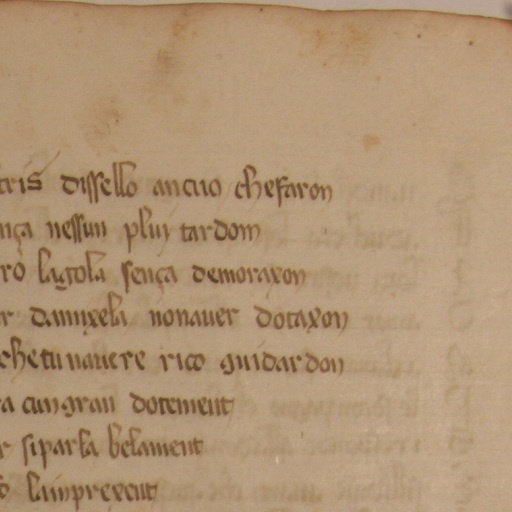 tris dissello ancuo chefaron
nça nessun pluy tardom
rò lagola sença demoraxon
r damixela nonauer dotaxon
chetu nauere rico guidardon
ra cumgran dotement
r siparla belament
o lainprexent